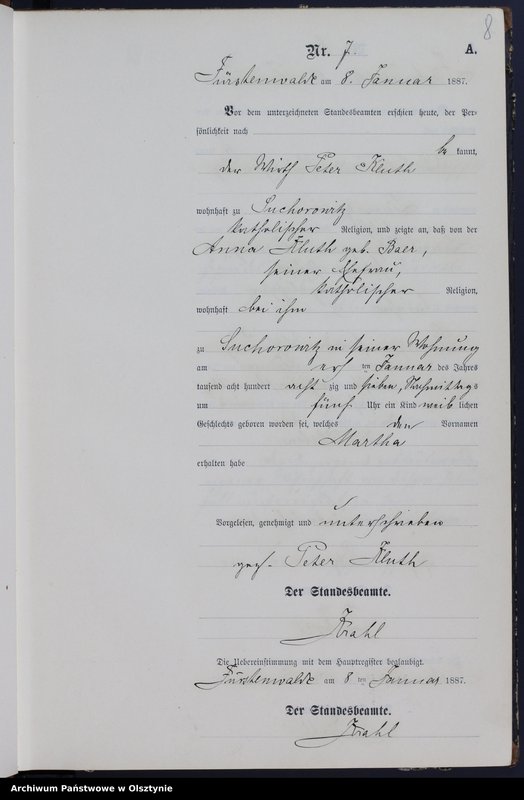 8
Nr. 7. A.
Fürstenwalde am 8. Januar 1887.
Vor dem unterzeichneten Standesbeamten erschien heute, der Per-
sönlichkeit nach
be kannt,
der Wirth Peter Kluth
wohnhaft zu Suchorowitz
katholischer Religion, und zeigte an, daß von der
Anna Kluth geb. Baer,
seiner Ehefrau,
katholischer Religion,
wohnhaft bei ihm
zu Suchorowitz in seiner Wohnung
am ten Januar des Jahres
tausend acht hundert acht zig und sieben, Nachmittags
um fünf Uhr ein Kind weib lichen
Geschlechts geboren worden sei, welches den Vornamen
Martha
erhalten habe
Vorgelesen, genehmigt und unterschrieben
gez. Peter Kluth
Der Standesbeamte.
Krahl
Die Uebereinstimmung mit dem Hauptregister beglaubigt.
Fürstenwalde am 8 ten Januar 1887.
Der Standesbeamte.
Krahl
Archiwum Państwowe w Olsztynie